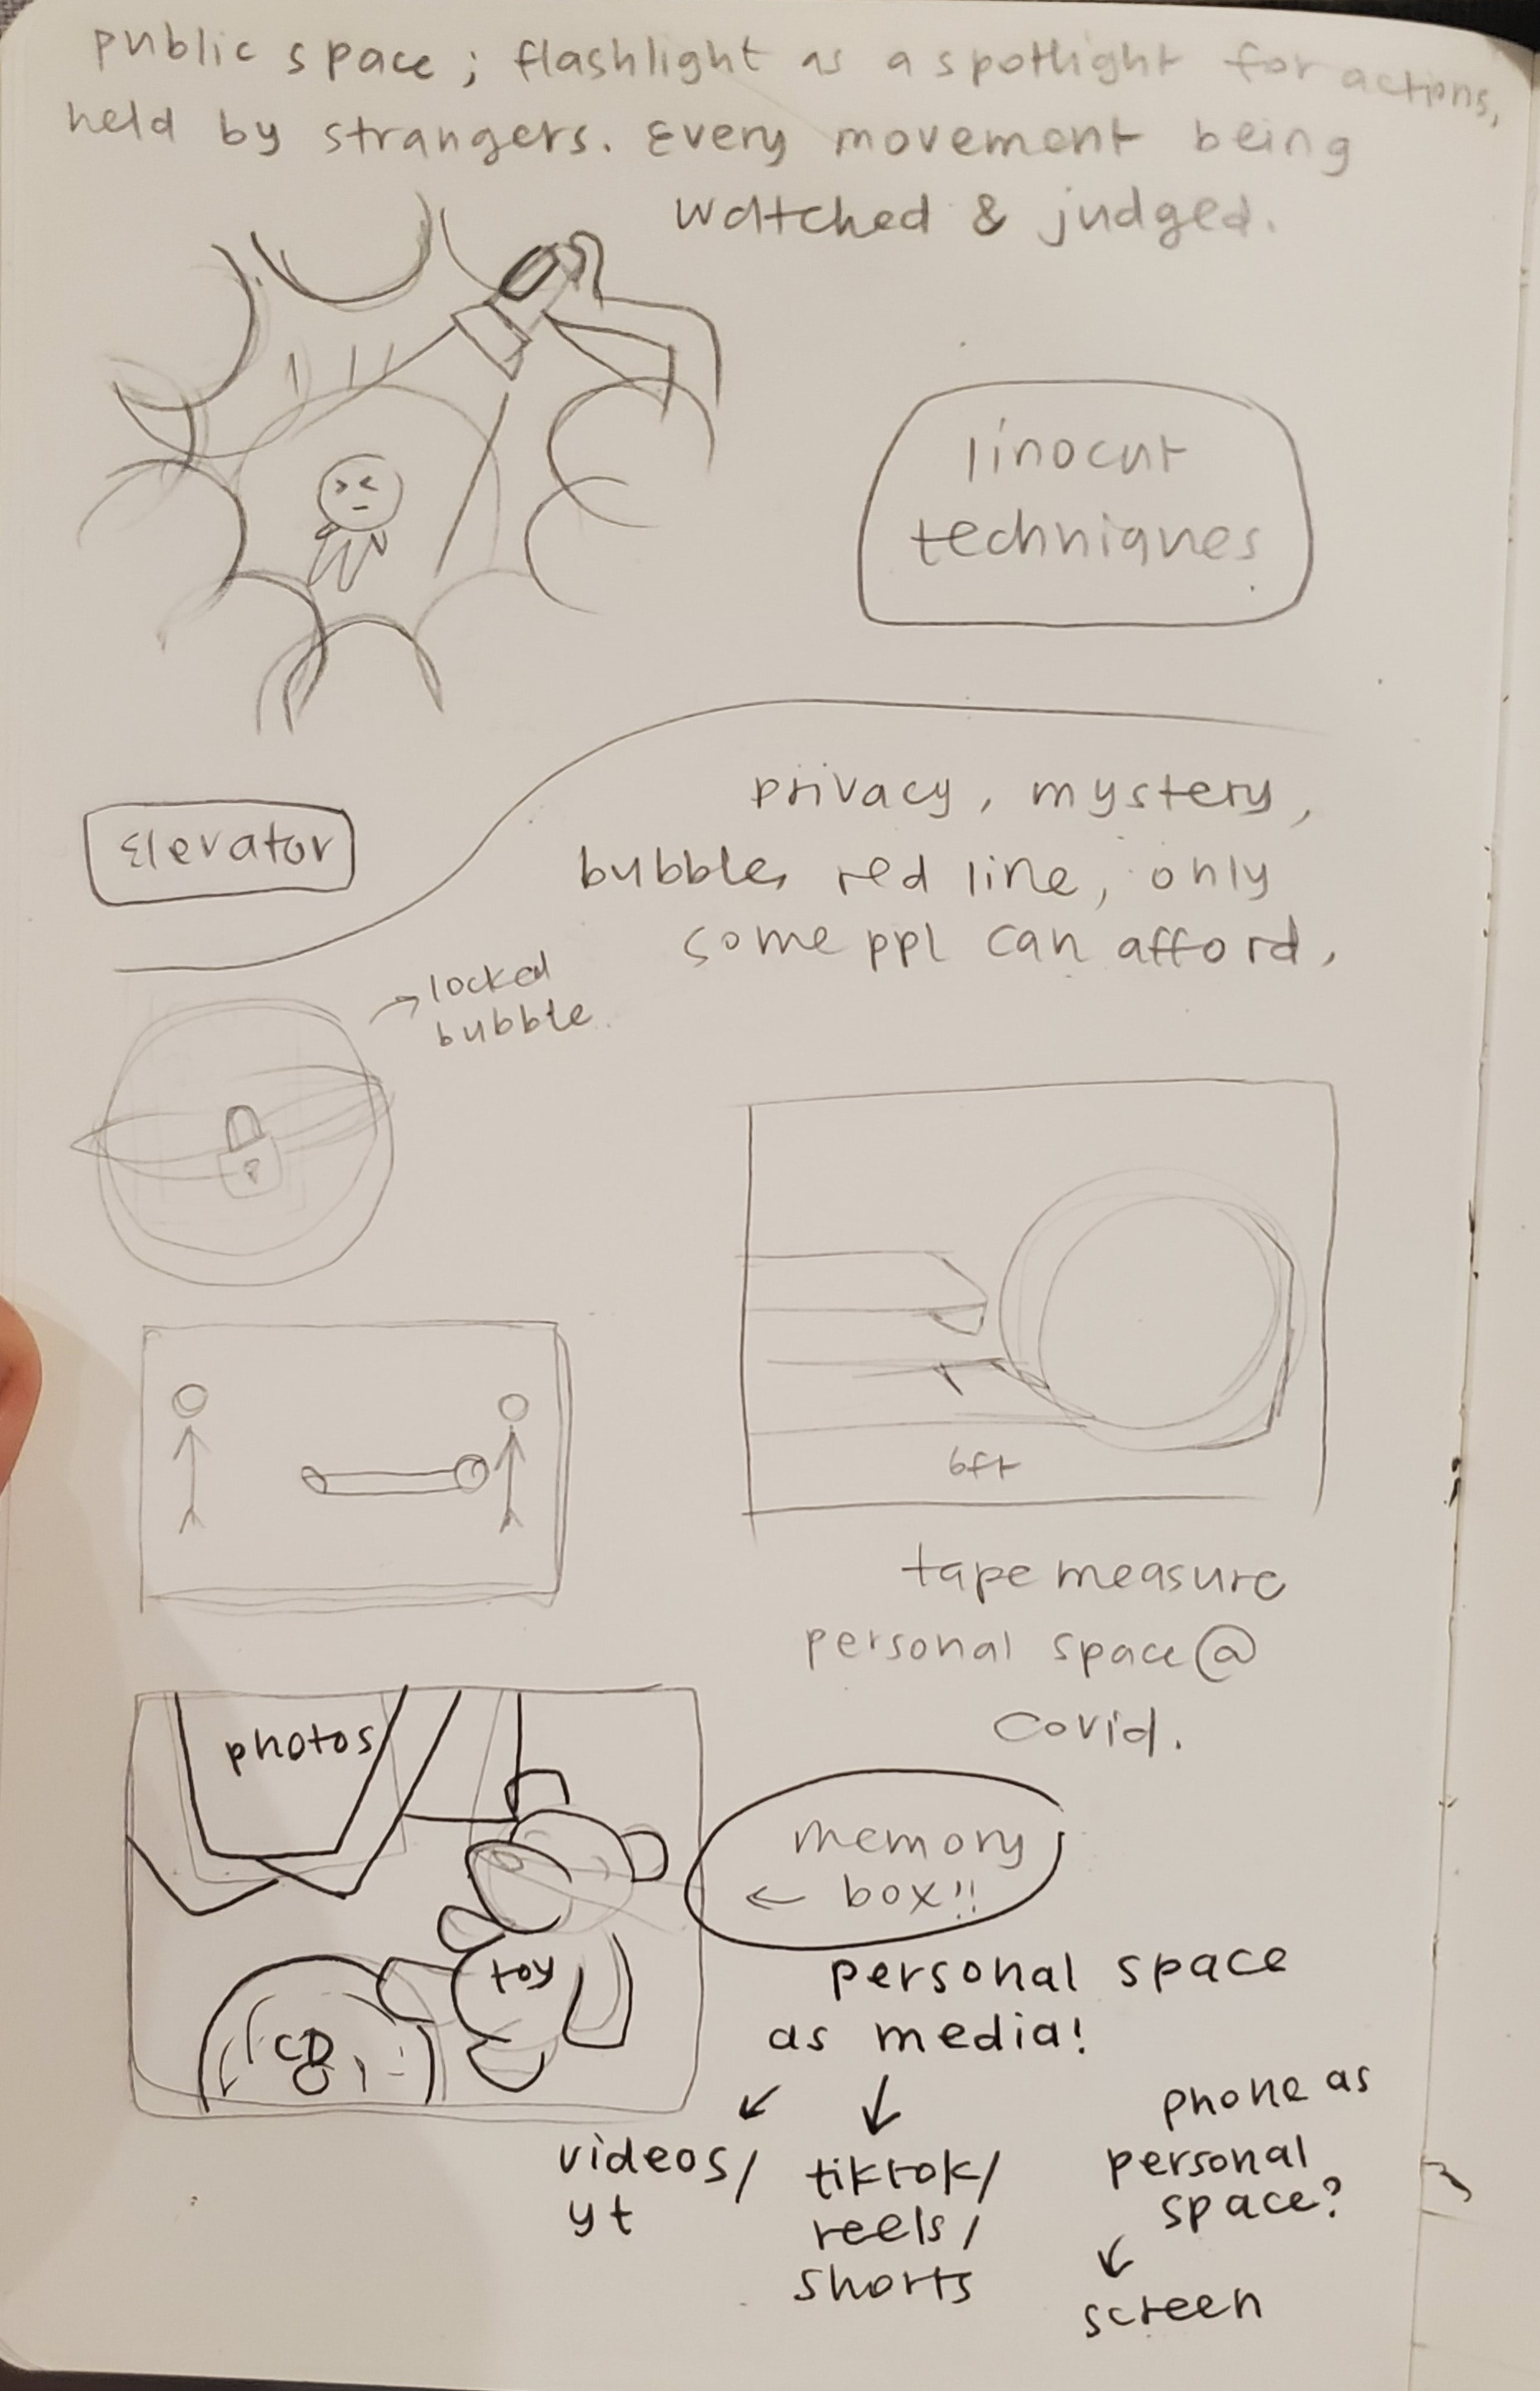 public space; flashlight as a spotlight for actions,
held by strangers. Every movement being
watched & judged.
linocut
techniques
Elevator
privacy, mystery,
bubble, red line, only
some ppl can afford,
→ locked
bubble
6ft
tape measure
personal space @
covid.
photos
toy
CD
memory
← box!!
personal space
as media!
↙ ↓
videos/
yt
tiktok/
reels/
shorts
phone as
personal
space?
↙
screen